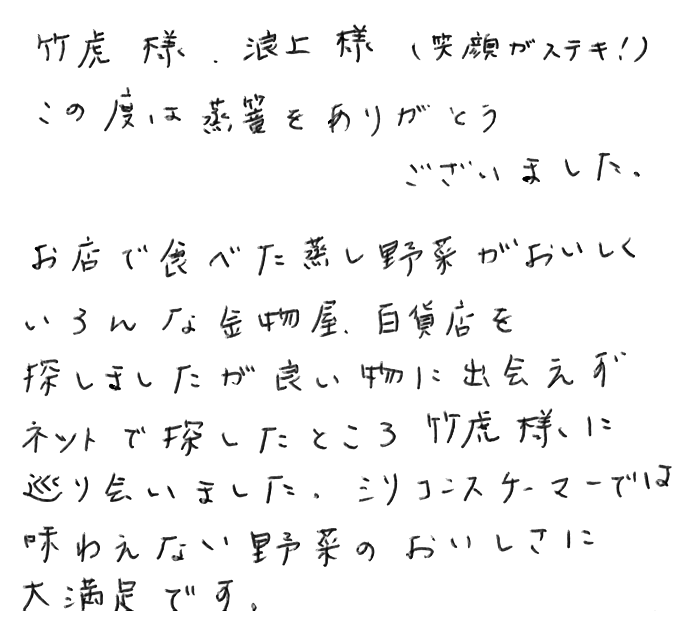 竹虎 様、浪上 様 (笑顔がステキ!)
この度は蒸篭をありがとう
ございました。
お店で食べた蒸し野菜がおいしく
いろんな金物屋、百貨店を
探しましたが良い物に出会えず
ネットで探したところ 竹虎様に
巡り会いました。シリコンスケーマーでは
味わえない野菜のおいしさに
大満足です。